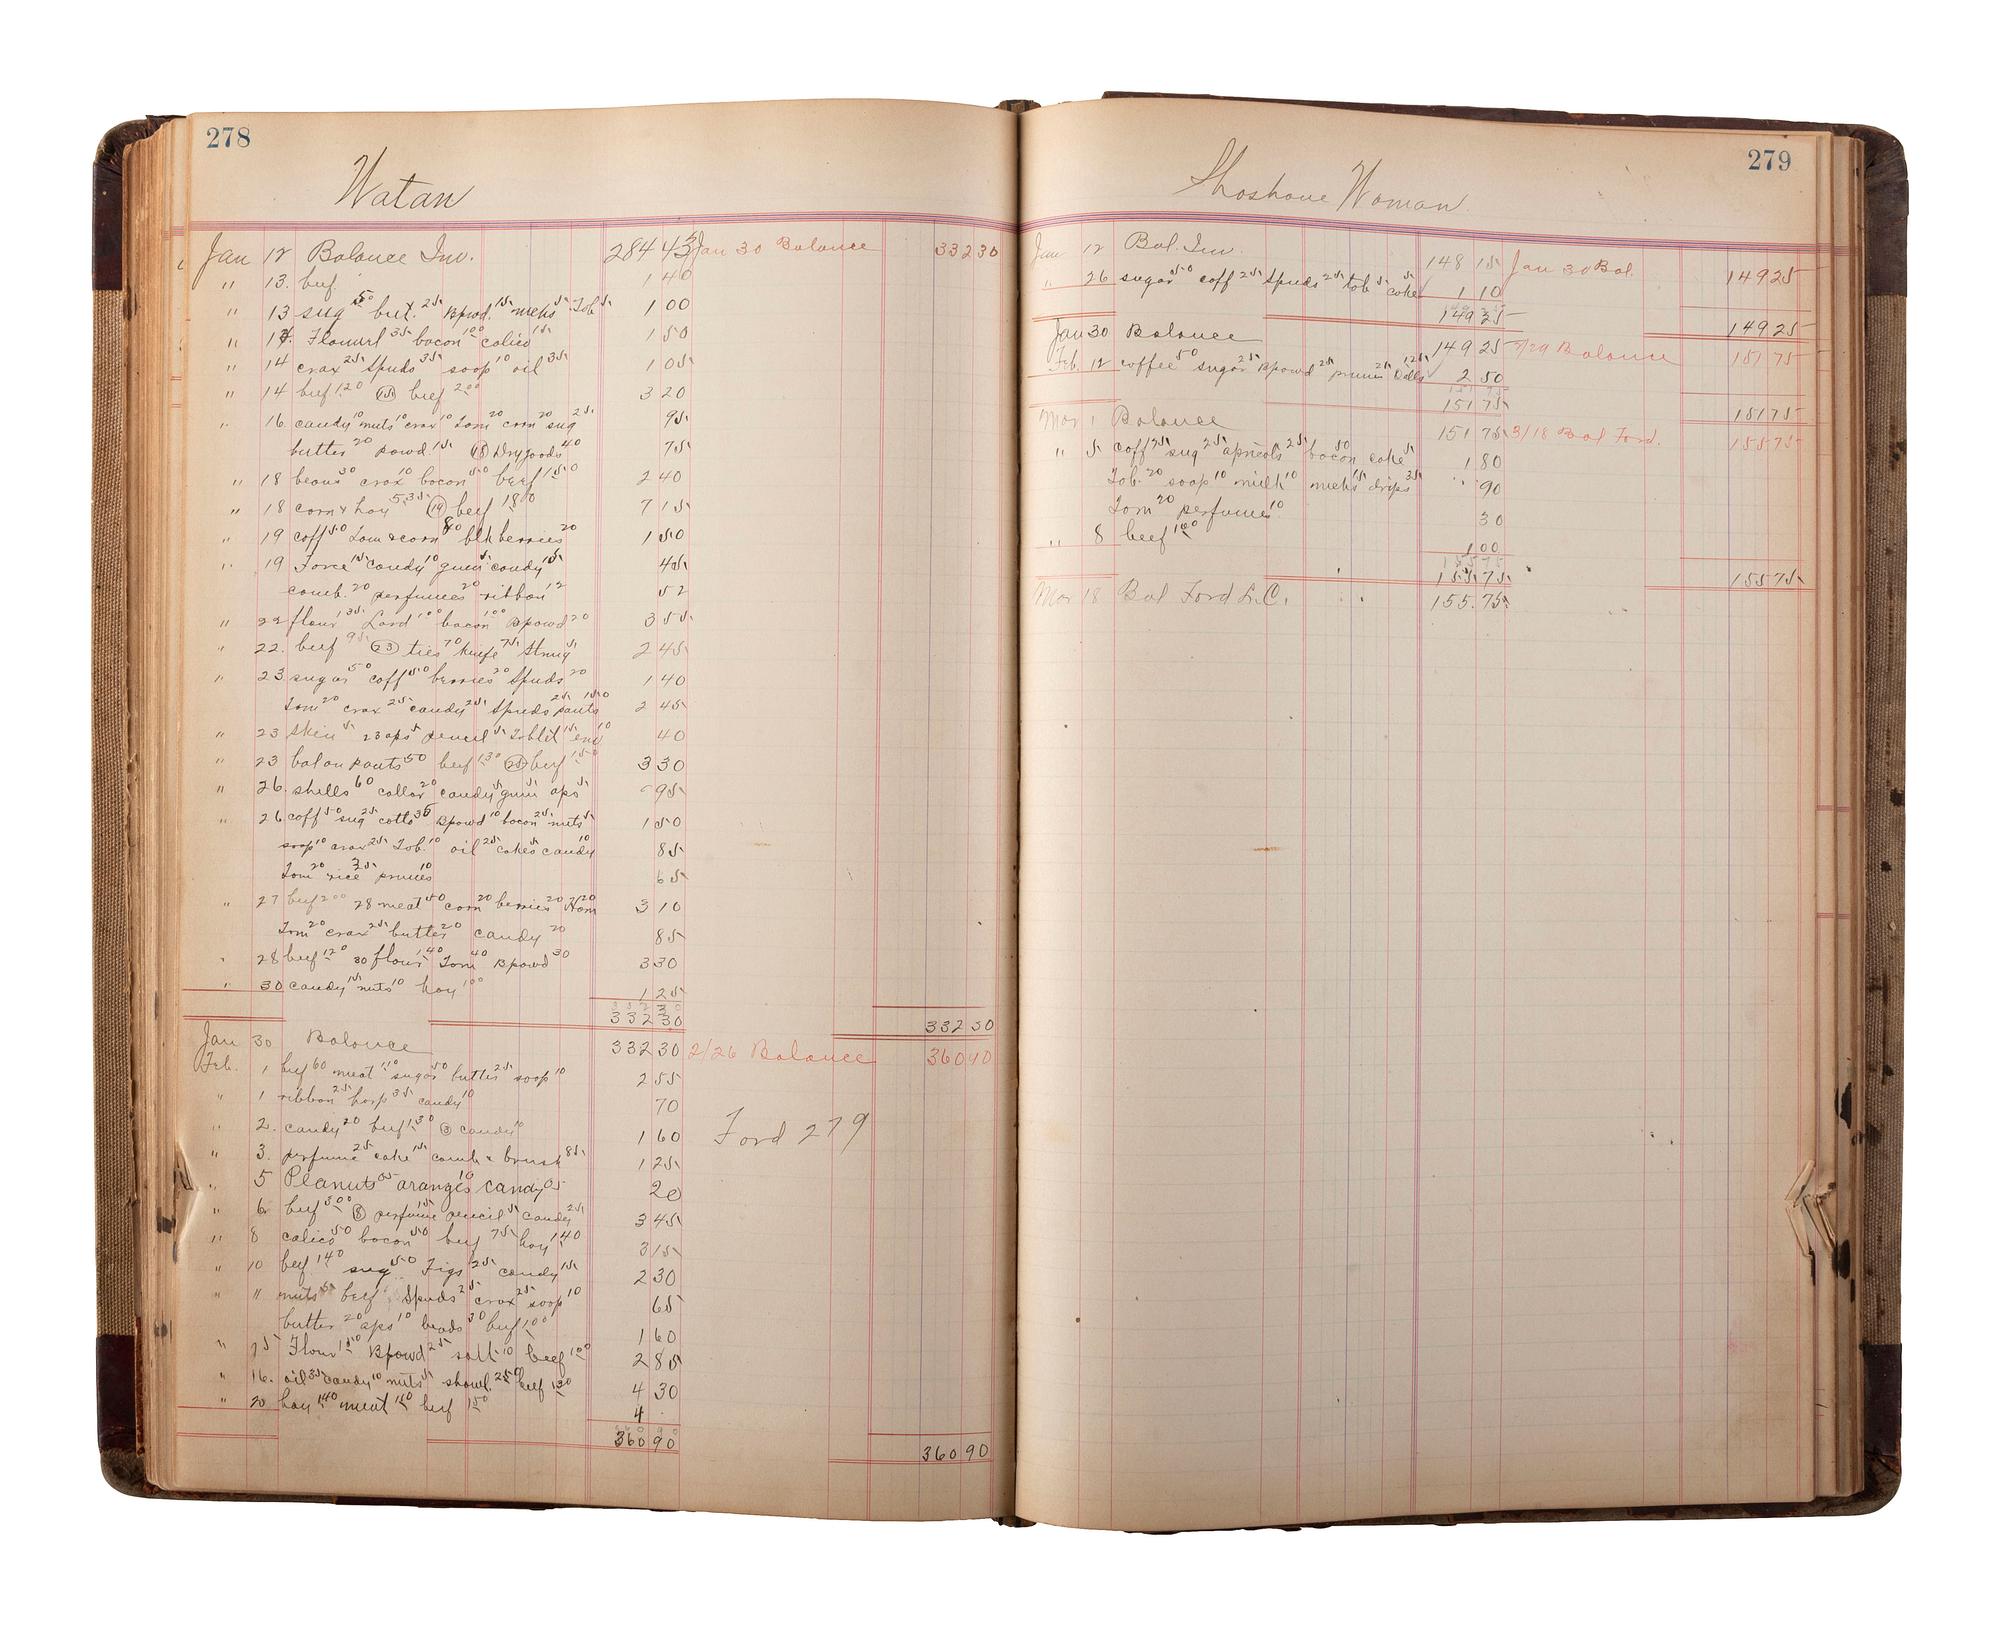 278
Watan
Jan 12 Balance Inv. 284 43 Jan 30 Balance 332 30
" 13. beef. 1 40
" 13 sug 50 but. 25 Bpowd. 15 meks 5 Tob 5 1 00
" 14. Flourrl 35 bacon 100 calico 15 1 50
" 14 crax 25 Spuds 35 soap 10 oil 35 1 05
" 14 beef 1.20 (15) beef 2.00 3 20
" 16. candy 10 nuts 10 crax 10 Tom 20 corn 20 sug 25 95
butter 20 powd. 15 (18) Drygoods 40 75
" 18 beans 30 crax 10 bacon 50 beef 150 2 40
" 18 corn & hay 5.35 (19) beef 180 7 15
" 19 coff 50 Tom & corn 80 blk berries 20 1 50
" 19 Force 15 candy 10 gum 5 candy 15 45
comb. 20 perfumes 20 ribbon 12 52
" 22 flour 135 Lard 100 bacon 100 Bpowd 20 3 55
" 22. beef 95 (23) ties 70 knife 75 String 5 2 45
" 23 sugar 50 coff 50 berries 20 Spuds 20 1 40
Tom 20 crax 25 candy 25 Spuds 25 pants 150 2 45
" 23 Skein 5 23 aps 5 pencil 5 Tablet 15 env 10 40
" 23 bal on pants 50 beef 130 (25) beef 150 3 30
" 26. shells 60 collar 20 candy 5 gum 5 aps 5 95
" 26 coff 50 sug 25 cotto 35 Bpowd 10 bacon 25 nuts 5 1 50
soap 10 crax 25 Tob. 10 oil 25 cakes 5 candy 10 85
Tom 20 rice 35 prunes 10 65
" 27 beef 200 28 meat 50 corn 20 berries 20 Hom 20 3 10
Tom 20 crax 25 butter 20 candy 20 85
" 28 beef 120 30 flour 140 Tom 40 Bpowd 30 3 30
" 30 candy 15 nuts 10 hay 100 1 25
332 30
332 30 332 30
Jan 30 Balance 332 30 2/26 Balance 360 90
Feb. 1 beef 60 meat 110 sugar 50 butter 25 soap 10 2 55
" 1 ribbon 25 harp 35 candy 10 70
" 2. candy 20 beef 1.30 (3) candy 10 1 60
Ford 279
" 3. perfume 25 cake 15 comb & brush 85 1 25
" 5 Peanuts 05 aranges 10 candy 05 20
" 6 beef 300 (8) perfume 15 pencil 5 candy 25 3 45
" 8 calico 50 bacon 50 beef 75 hay 140 3 15
" 10 beef 140 sug 50 Figs 25 candy 15 2 30
" 11 nuts 5 beef Spuds 25 crax 25 soap 10 65
butter 20 aps 10 beads 30 beef 100 1 60
" 15 Flour 150 Bpowd 25 salt 10 beef 100 2 85
" 16. oil 35 candy 10 nuts 5 shawl. 250 beef 130 4 30
" 20 hay 140 meat 110 beef 150 4
360 90 360 90
279
Shoshone Woman
Jan 12 Bal. Inv. 148 15 Jan 30 Bal. 149 25
" 26 sugar 50 coff 25 Spuds 25 tob 5 cake 5 1 10
149 25 149 25
Jan 30 Balance 149 25 2/29 Balance 151 75
Feb. 12 coffee 50 sugar 25 Bpowd 25 prunes 25 Dolls 125 2 50
151 75 151 75
Mar 1 Balance 151 75 3/18 Bal Ford. 155 75
" 5 coff 75 sug 25 apricots 25 bacon 50 cake 5 1 80
Tob. 20 soap 10 milk 10 meks 15 drips 35 90
Tom 20 perfumes 10 30
" 8 beef 100 1 00
155 75
155 75 155 75
Mar 18 Bal Ford L.C. 155.75